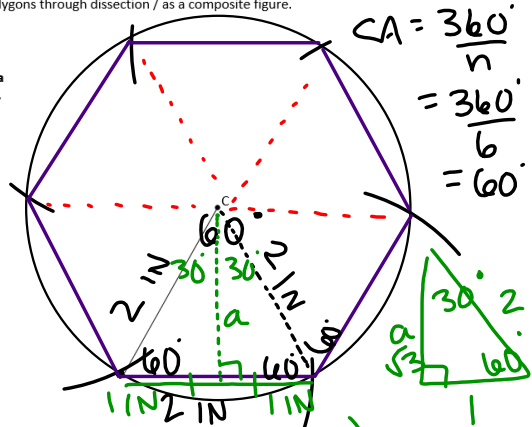 lygons through dissection / as a composite figure.
a
CA = 360°
n
= 360°
6
= 60°
C
60°
30° 30°
2 IN
2 IN
a
60° 60° 60°
1 IN 2 IN 1 IN
30° 2
a
√3 60°
1